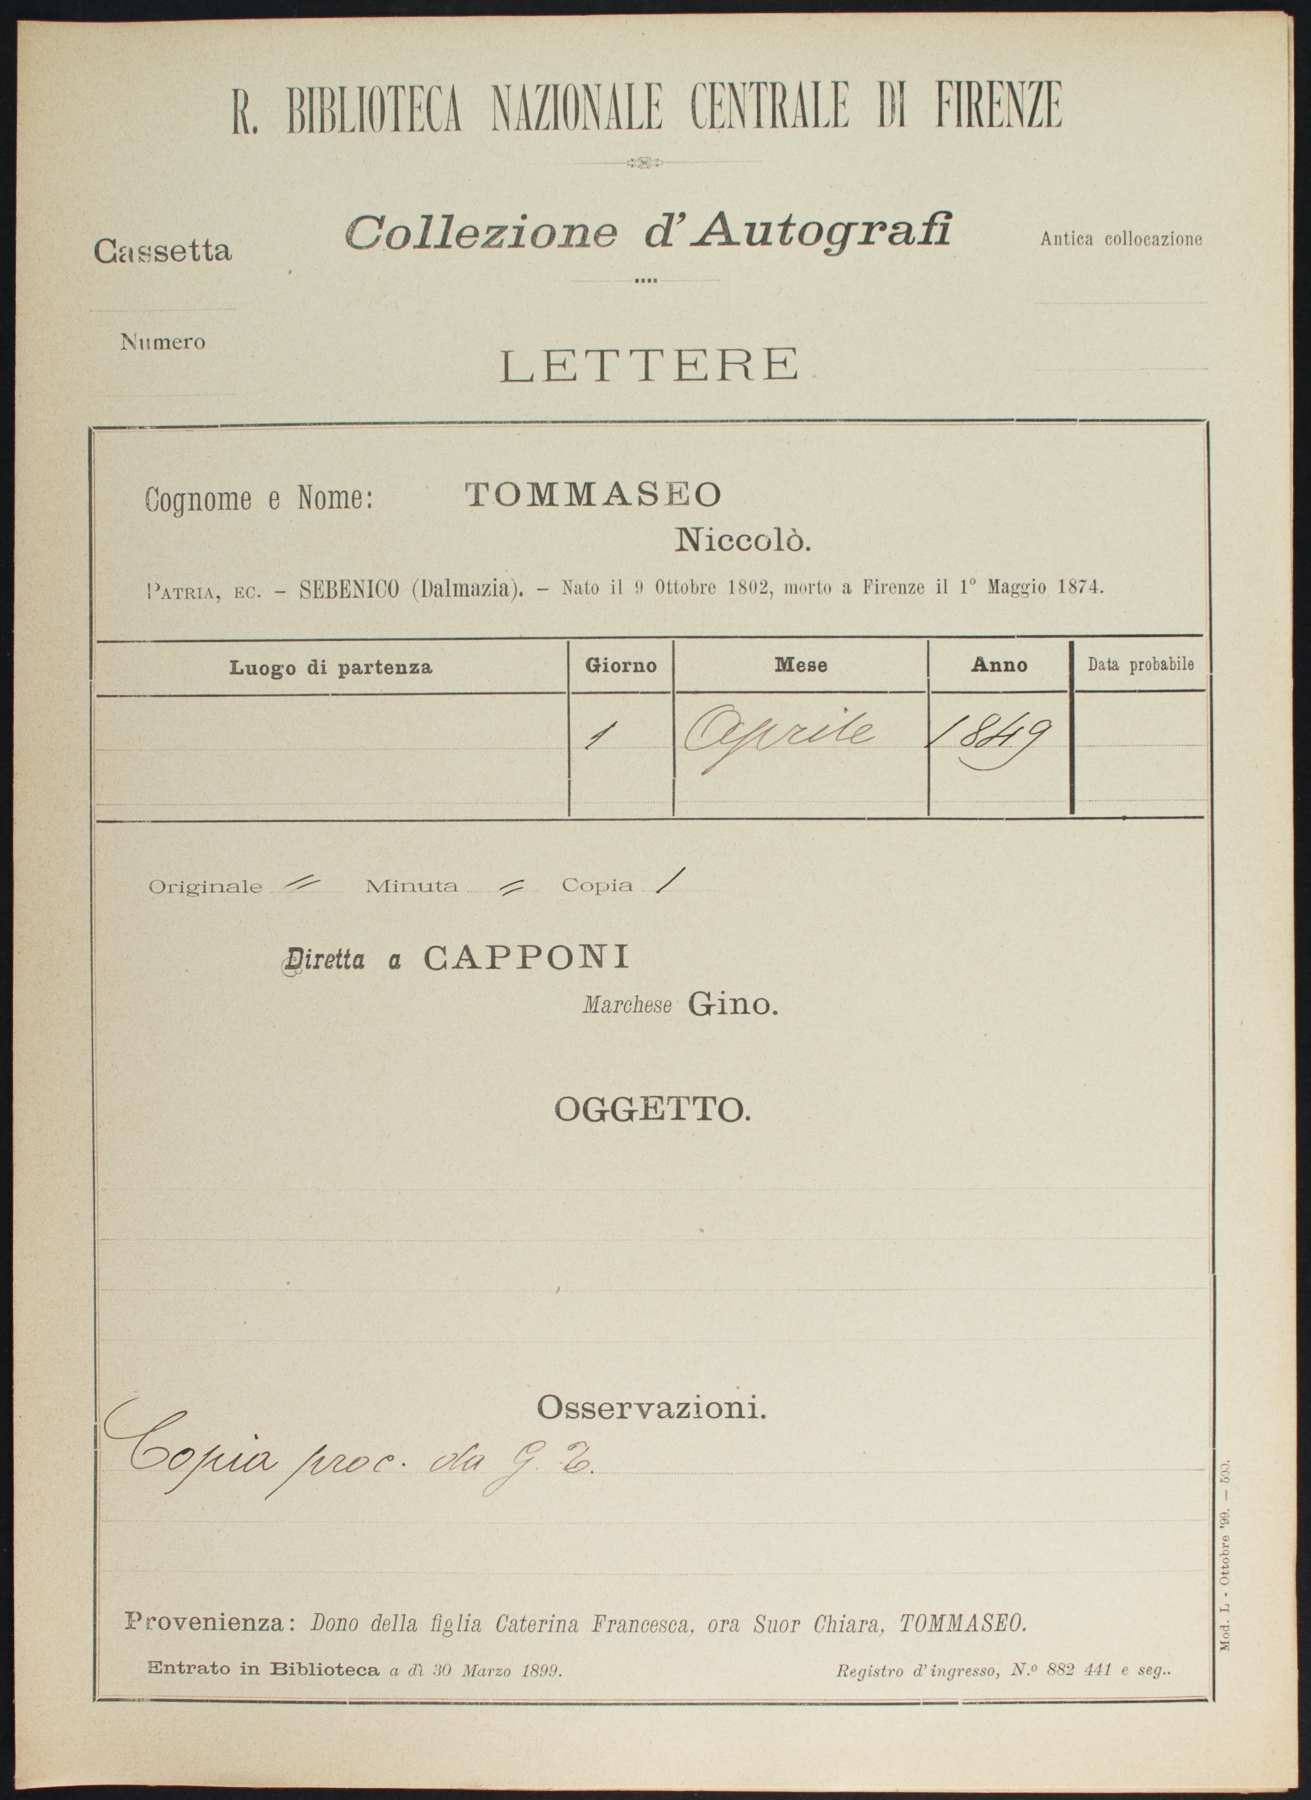 R. BIBLIOTECA NAZIONALE CENTRALE DI FIRENZE
Cassetta
Collezione d'Autografi
Antica collocazione
Numero
LETTERE
Cognome e Nome: TOMMASEO
Niccolò.
PATRIA, EC. - SEBENICO (Dalmazia). - Nato il 9 Ottobre 1802, morto a Firenze il 1° Maggio 1874.
Luogo di partenza Giorno Mese Anno Data probabile
1 Aprile 1849
Originale = Minuta = Copia 1
Diretta a CAPPONI
Marchese Gino.
OGGETTO.
Osservazioni.
Copia proc. da G. T.
Provenienza: Dono della figlia Caterina Francesca, ora Suor Chiara, TOMMASEO.
Entrato in Biblioteca a dì 30 Marzo 1899. Registro d'ingresso, N.º 882 441 e seg..
Mod. L - Ottobre '99. — 500.